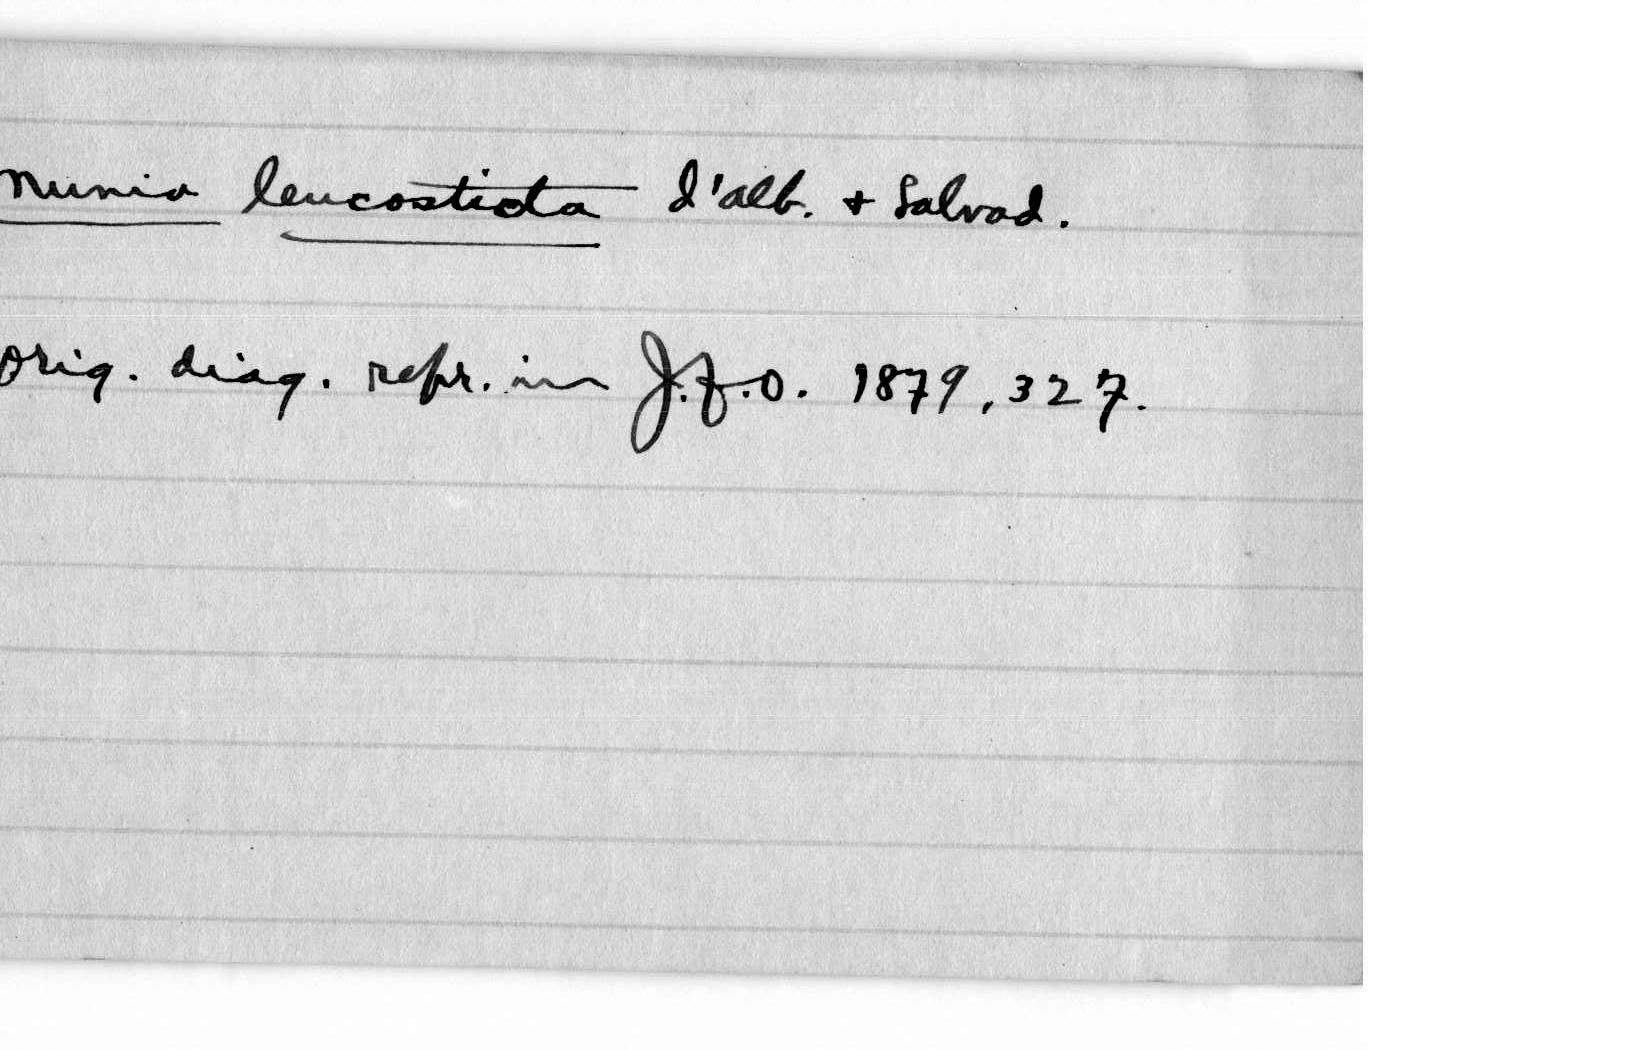 Munia leucosticta d'alb. + Salvad.
Orig. diag. repr. in J.f.O. 1879, 327.